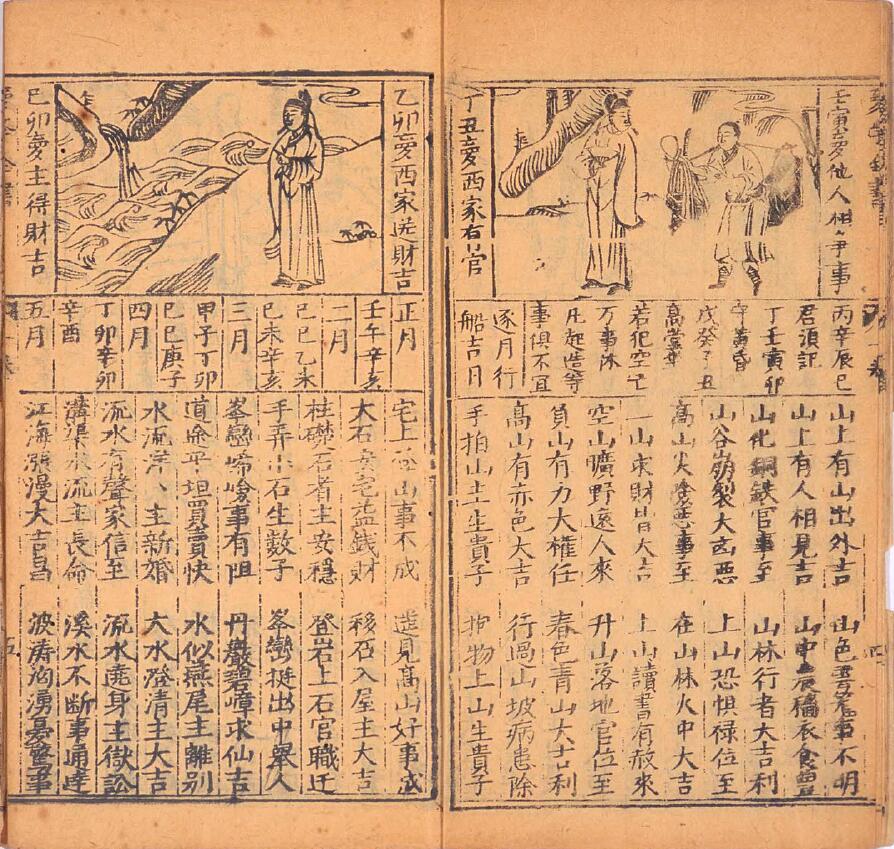 壬寅夢他人相爭事
丁丑夢西家有官
丙辛辰巳
君須記
丁壬寅卯
守黃昏
戊癸子丑
高堂坐
若犯空亡
万事休
凡起造等
事俱不宜
逐月行
船吉日
山上有山出外吉
山上有人相見吉
山化銅鉄官事至
山谷崩裂大凶悪
高山火燒悪事至
上山求財皆大吉
空山曠野遠人來
負山有力大權任
高山有赤色大吉
手拍山土生貴子
山色不明
山中衣食豐
山林行者大吉利
上山恐惧禄位至
在山林火中大吉
上山讀書有赦來
升山落地官位至
春色青山大吉利
行過山坡病患除
抱物上山生貴子
四
乙卯夢西家送財吉
己卯夢主得財吉
正月
壬午辛亥
二月
己巳乙未
己未辛亥
三月
甲子丁卯
己巳庚子
四月
丁卯辛卯
辛酉
五月
宅上山事不成
大石安宅益錢財
柱礎石者主安穩
手弄小石生數子
峯巒峻事有阻
道途平坦買賣快
水流洋洋主新婚
流水有聲家信至
溝渠水流主長命
江海漲漫大吉昌
遠見高山好事成
移石入屋主大吉
登岩上石官職迁
峯巒挺出中舉人
丹巖碧嶂求仙吉
水似燕尾主離別
大水澄清主大吉
流水遶身主獄訟
溪水不断事通達
波涛洶湧
五